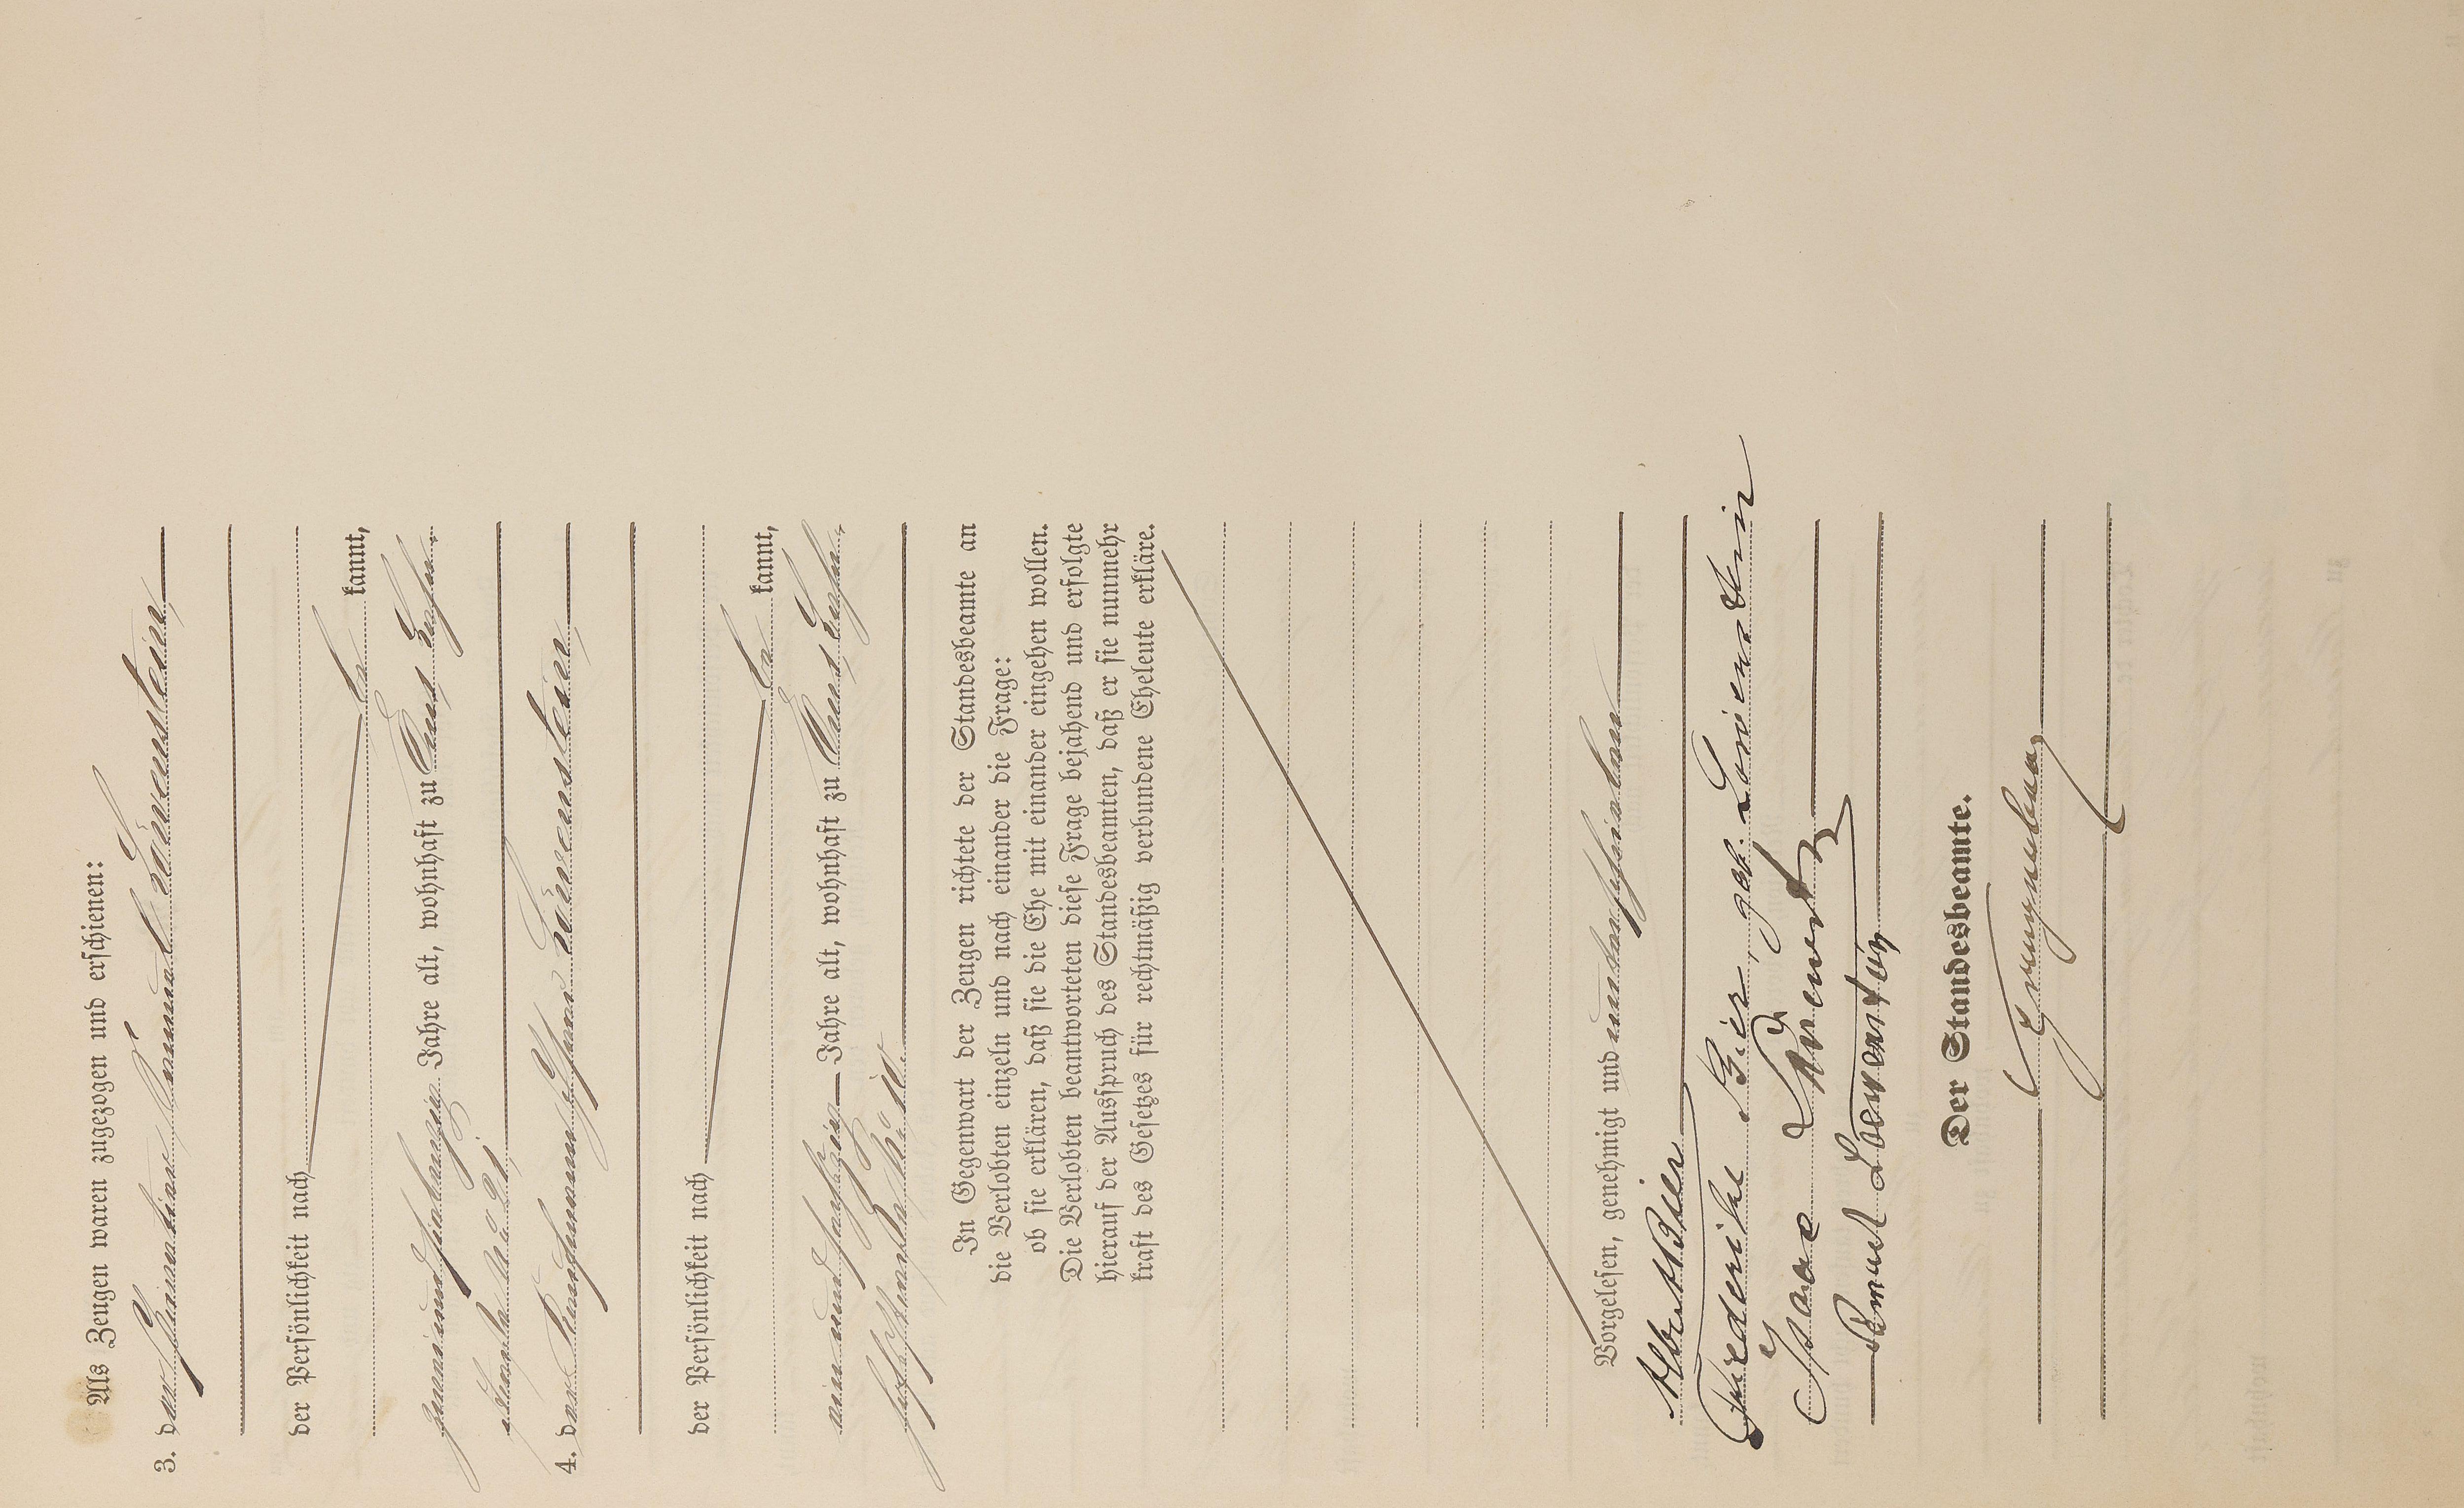 Als Zeugen waren zugezogen und erschienen:
3. der Samuel Löwenstein,
der Persönlichkeit nach
be kannt,
zweiunddreißig Jahre alt, wohnhaft zu
4. der Löwenstein,
der Persönlichkeit nach
be kannt,
einundfünfzig Jahre alt, wohnhaft zu
In Gegenwart der Zeugen richtete der Standesbeamte an
die Verlobten einzeln und nach einander die Frage:
ob sie erklären, daß sie die Ehe mit einander eingehen wollen.
Die Verlobten beantworteten diese Frage bejahend und erfolgte
hierauf der Ausspruch des Standesbeamten, daß er sie nunmehr
kraft des Gesetzes für rechtmäßig verbundene Eheleute erkläre.
Vorgelesen, genehmigt und unterschrieben
Albert Bier
Friederike Bier, geb. Löwenstein
Isaac
Samuel Loewenstein
Der Standesbeamte.